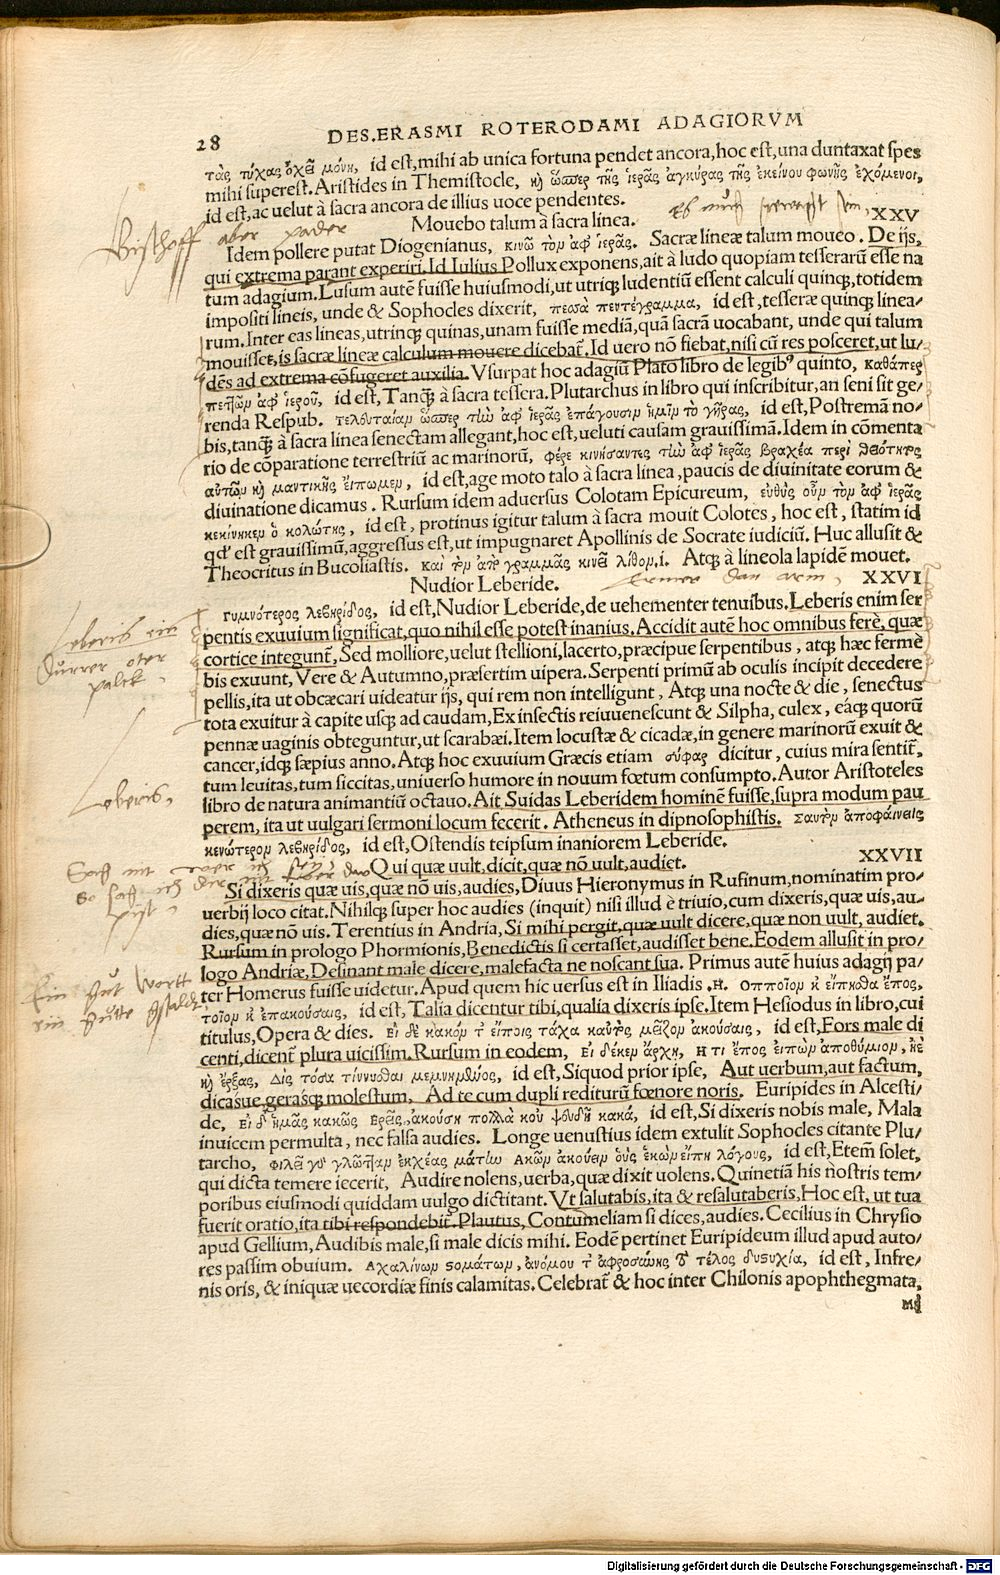 28
DES.ERASMI ROTERODAMI ADAGIORVM
τὰς τύχας ὀχεῖ μόνη, id est,mihi ab unica fortuna pendet ancora,hoc est,una duntaxat spes
mihi superest.Aristides in Themistocle, ϗ ὥσπερ τῆς ἱερᾶς ἀγκύρας τῆς ἐκείνου φωνῆς ἐχόμενοι,
id est,ac uelut à sacra ancora de illius uoce pendentes.
Es muß gewagt sein,
Mouebo talum à sacra linea.
XXV
Bischoff aber pader
Idem pollere putat Diogenianus, κινῶ τὸν ἀφ᾽ ἱερᾶς. Sacræ lineæ talum moueo. De ijs,
qui extrema parant experiri.Id Iulius Pollux exponens,ait à ludo quopiam tesserarũ esse na
tum adagium.Lusum autẽ fuisse huiusmodi,ut utriqꝫ ludentiũ essent calculi quinqꝫ,totidem
impositi lineis, unde & Sophocles dixerit, πεσσὰ πεντέγραμμα, id est,tesseræ quinqꝫ linea/
rum.Inter eas lineas,utrinqꝫ quinas,unam fuisse mediã,quã sacrã uocabant, unde qui talum
mouisset,is sacræ lineæ calculum mouere dicebat̃.Id uero nõ fiebat,nisi cũ res posceret,ut lu/
dẽs ad extrema cõfugeret auxilia.Vsurpat hoc adagiũ Plato libro de legibꝰ quinto, καθάπερ
πεττῶν ἀφ᾽ ἱεροῦ, id est,Tanꝗ̃ à sacra tessera.Plutarchus in libro qui inscribitur,an seni sit ge/
renda Respub. τελευταίαν ὥσπερ τὴν ἀφ᾽ ἱερᾶς ἐπάγουσιν ἡμῖν τὸ γῆρας, id est,Postremã no/
bis,tanꝗ̃ à sacra linea senectam allegant,hoc est,ueluti causam grauissimã.Idem in cõmenta
rio de cõparatione terrestriũ ac marinorũ, φέρε κινήσαντες τὴν ἀφ᾽ ἱερᾶς βραχέα περὶ θεότητος
αὐτῶν ϗ μαντικῆς εἴπωμεν, id est,age moto talo à sacra linea,paucis de diuinitate eorum &
diuinatione dicamus. Rursum idem aduersus Colotam Epicureum, εὐθὺς οὖν τὸν ἀφ᾽ ἱερᾶς
κεκίνηκεν ὁ κολώτης, id est, protinus igitur talum à sacra mouit Colotes, hoc est, statim id
qđ est grauissimũ,aggressus est,ut impugnaret Apollinis de Socrate iudiciũ. Huc allusit &
Theocritus in Bucoliastis. καὶ τὸν ἀπὸ γραμμᾶς κινεῖ λίθον.i. Atqꝫ à lineola lapidẽ mouet.
Nudior Leberide.
Ermer dan arm,
XXVI
γυμνότερος λεβηρίδος, id est,Nudior Leberide,de uehementer tenuibus.Leberis enim ser
Leberis ein
pentis exuuium significat,quo nihil esse potest inanius,Accidit autẽ hoc omnibus ferè, quæ
Durrer oter
cortice integunt̃, Sed molliore,uelut stellioni,lacerto,præcipue serpentibus, atqꝫ hæc fermè
palck.
bis exuunt, Vere & Autumno,præsertim uipera.Serpenti primũ ab oculis incipit decedere
pellis,ita ut obcæcari uideatur ijs, qui rem non intelligunt, Atqꝫ una nocte & die, senectus
tota exuitur à capite usqꝫ ad caudam,Ex insectis reiuuenescunt & Silpha, culex, eáqꝫ quorũ
pennæ uaginis obteguntur,ut scarabæi.Item locustæ & cicadæ,in genere marinorũ exuit &
cancer,idqꝫ sæpius anno.Atqꝫ hoc exuuium Græcis etiam σύφας dicitur, cuius mira sentit̃,
tum leuitas,tum siccitas,uniuerso humore in nouum fœtum consumpto.Autor Aristoteles
Leberis,
libro de natura animantiũ octauo.Ait Suidas Leberidem hominẽ fuisse,supra modum pau
perem,ita ut uulgari sermoni locum fecerit. Atheneus in dipnosophistis. Σαυτὸν ἀποφαίνεις
κενώτερον λεβηρίδος, id est,Ostendis teipsum inaniorem Leberide.
Qui quæ uult,dicit,quæ nõ uult,audiet.
XXVII
Sag mit wer ich sey
So sag ich dir
Si dixeris quæ uis,quæ nõ uis,audies,Diuus Hieronymus in Rufinum,nominatim pro/
uerbij loco citat.Nihilqꝫ super hoc audies (inquit) nisi illud è triuio,cum dixeris,quæ uis,au/
dies,quæ nõ uis. Terentius in Andria,Si mihi pergit,quæ uult dicere,quæ non uult, audiet.
Rursum in prologo Phormionis,Benedictis si certasset,audisset bene.Eodem allusit in pro/
logo Andriæ,Desinant male dicere,malefacta ne noscant sua. Primus autẽ huius adagij pa/
Ein gut Wortt
ter Homerus fuisse uidetur.Apud quem hic uersus est in Iliadis .Η. Ὁπποῖον κ᾽ εἴπῃσθα ἔπος,
ein gutte
τοῖον κ᾽ ἐπακούσαις, id est,Talia dicentur tibi,qualia dixeris ipse.Item Hesiodus in libro,cui
titulus,Opera & dies. Εἰ δὲ κακὸν τ᾽ εἴποις τάχα καὐτὸς μεῖζον ἀκούσαις, id est,Fors male di
centi,dicent̃ plura uicissim.Rursum in eodem, Εἰ δέ κεν ἄρχῃ, Η τι ἔπος εἰπὼν ἀποθύμιον, ἠὲ
ϗ ἔρξας, Δὶς τόσα τίννυσθαι μεμνημένος, id est,Siquod prior ipse, Aut uerbum,aut factum,
dicasue,gerasqꝫ molestum, Ad te cum dupli rediturũ fœnore noris. Euripides in Alcesti/
de, Εἰ δ᾽ ἡμᾶς κακῶς Ερεῖς, ἀκούσῃ πολλὰ κοὐ ψευδῆ κακά, id est,Si dixeris nobis male, Mala
inuicem permulta, nec falsa audies. Longe uenustius idem extulit Sophocles citante Plu/
tarcho, Φιλεῖ γὰρ γλῶτταν ἐκχέας μάτην Ακων ἀκούειν οὓς ἑκὼν εἴπῃ λόγους, id est,Etem̃ solet,
qui dicta temere iecerit, Audire nolens,uerba,quæ dixit uolens.Quinetiã his nostris tem/
poribus eiusmodi quiddam uulgo dictitant. Vt salutabis,ita & resalutaberis,Hoc est, ut tua
fuerit oratio,ita tibi respondebit̃.Plautus,Contumeliam si dices,audies.Cecilius in Chrysio
apud Gellium,Audibis male,si male dicis mihi. Eodẽ pertinet Euripideum illud apud auto/
res passim obuium. Αχαλίνων στομάτων, ἀνόμου τ᾽ ἀφροσύνης τὸ τέλος δυστυχία, id est, Infre/
nis oris, & iniquæ uecordiæ finis calamitas.Celebrat̃ & hoc inter Chilonis apophthegmata,
Digitalisierung gefördert durch die Deutsche Forschungsgemeinschaft - DFG